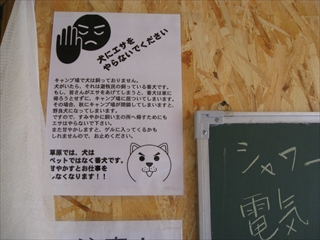 犬にエサを
やらないでください
キャンプ場で犬は飼っておりません。
犬がいたら、それは遊牧民の飼っている番犬です。
もし、皆さんがエサをあげてしまうと、番犬は家に
帰ろうとせずに、キャンプ場に居ついてしまいます。
その場合、秋にキャンプ場が閉鎖してしまいますと、
野良犬になってしまいます。
ですので、すみやかに飼い主の所へ帰すためにも
エサはやらないで下さい。
また甘やかしますと、ゲルに入ってくるかも
しれませんので、お止めください。
草原では、犬は
ペットではなく番犬です。
甘やかすとお仕事を
しなくなります!!
シャワー
電気